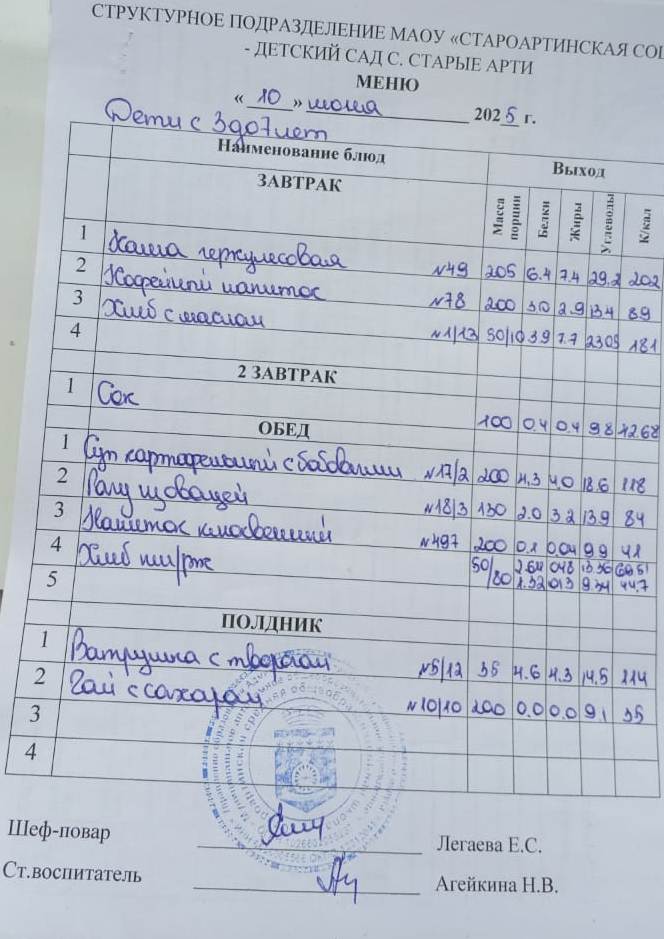 СТРУКТУРНОЕ ПОДРАЗДЕЛЕНИЕ МАОУ «СТАРОАРТИНСКАЯ СОШ
- ДЕТСКИЙ САД С. СТАРЫЕ АРТИ
МЕНЮ
« 10 » июня 2025 г.
Дети с 3 до 7 лет
Наименование блюд Выход
ЗАВТРАК Масса порции Белки Жиры Углеводы К/кал
1 Каша геркулесовая №49 205 6.4 7.4 29.2 202
2 Кофейный напиток №78 200 3.0 2.9 13.4 89
3 Хлеб с маслом №1/13 50/10 3.9 7.7 23.09 181
4
2 ЗАВТРАК
1 Сок 100 0.4 0.4 9.8 42.68
ОБЕД
1 Суп картофельный с бобовыми №17/2 200 4.3 4.0 18.6 118
2 Рагу из овощей №18/3 130 2.0 3.2 13.9 84
3 Напиток клюквенный №497 200 0.1 0.04 9.9 41
4 Хлеб пш/рж 50/80 2.64 0.48 13.36
1.32 0.13 9.34 44.7
5
ПОЛДНИК
1 Ватрушка с творогом №5/12 35 4.6 4.3 14.5 114
2 Чай с сахаром №10/10 200 0.0 0.0 9.1 35
3
4
Шеф-повар Легаева Е.С.
Ст.воспитатель Агейкина Н.В.